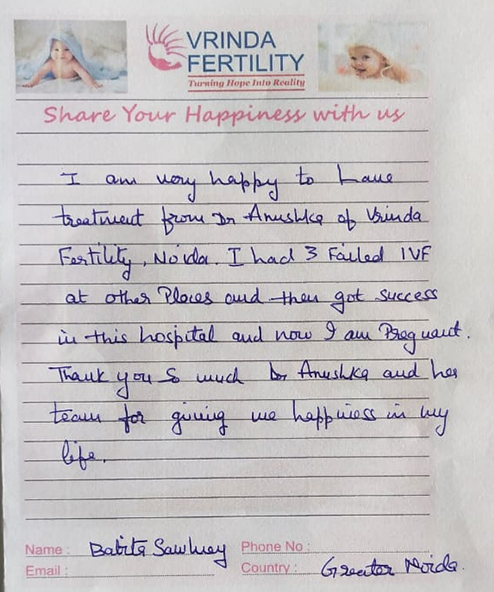 VRINDA
FERTILITY
Turning Hope Into Reality
Share Your Happiness with us
I am very happy to have
treatment from Dr Anushka of Vrinda
Fertility, Noida. I had 3 Failed IVF
at other Places and then got success
in this hospital and now I am Pregnant.
Thank you So much Dr Anushka and her
team for giving me happiness in my
life.
Name : Babita Sawhney Phone No :
Email : Country : Greater Noida.